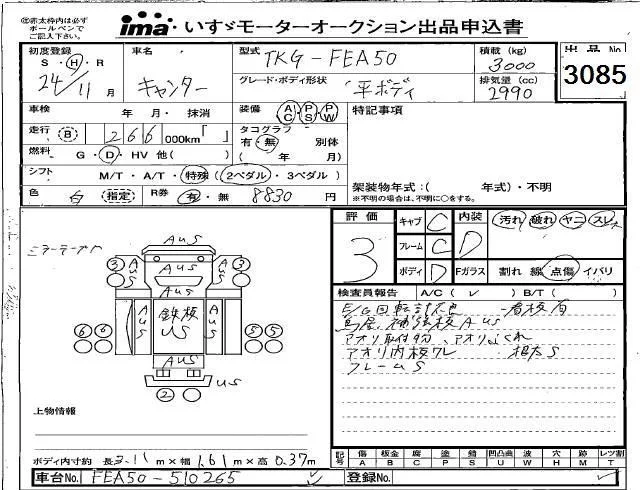 ㊟赤太枠内は必ず
ボールペンで
ご記入下さい。
ima いすゞモーターオークション出品申込書
初度登録 車名 型式 TKG-FEA50 積載 (kg) 3000 出品No. 3085
S・H・R
24/11月 キャンター グレード・ボディ形状 平ボディ 排気量 (cc) 2990
車検 年 月・抹消 装備 AC・PS・PW 特記事項
走行 B 266 000km「 」 タコグラフ
有・無 別体
燃料 G・D・HV 他( ) ( 年 月)
シフト M/T・A/T・特殊(2ペダル・3ペダル) 架装物年式:( 年式)・不明
※不明の場合は、不明に○をする。
色 白 (指定) R券 有・無 8830円
評価 3 キャブ C 内装 D 汚れ 破れ ヤニ スレ
フレーム C
ボディ D Fガラス 割れ 線 点傷 イバリ
検査員報告 A/C( ✓ ) B/T( )
E/G回転計不色 看板有
鳥居、補強板AUS
アオリ取付物、アオリよごれ
アオリ内板ワレ 根太S
フレームS
ミラーテープ
AUS
AUS
3 AUS AUS 3
AUS 鉄板 US AUS
6 6 5 5
AUS
US
2
上物情報
ボディ内寸約 長3.11m×幅1.61m×高0.37m
記号 傷 A 板金 B 腐 C 塗 P 錆 S 凹凸曲 U 波 W 穴 H 跡 M レツ割 T
車台No. FEA50-510265 ✓ 登録No. ✓